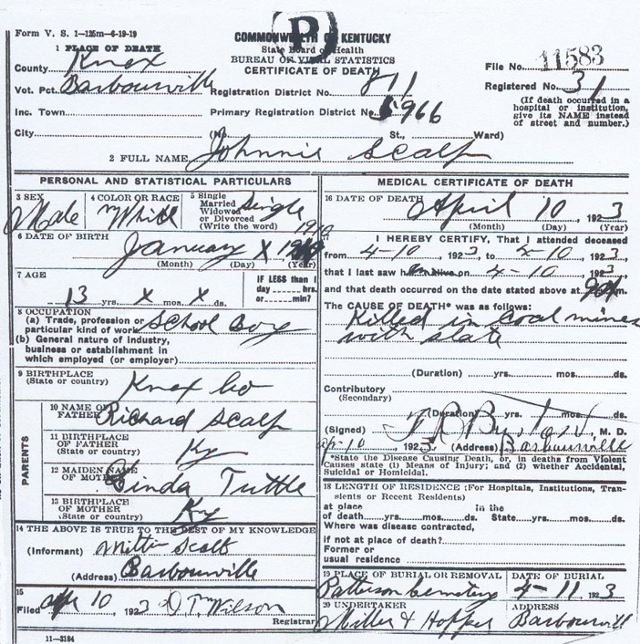 Form V. S. 1-125m-6-19-19
P
COMMONWEALTH OF KENTUCKY
State Board of Health
BUREAU OF VITAL STATISTICS
CERTIFICATE OF DEATH
1 PLACE OF DEATH
County Knox
Vot. Pct. Barbourville
Inc. Town
City (No. St., Ward)
Registration District No. 811
Primary Registration District No. 5966
File No. 11583
Registered No. 31
(If death occurred in a
hospital or institution,
give its NAME instead
of street and number.)
2 FULL NAME Johnnie Scalf
PERSONAL AND STATISTICAL PARTICULARS
3 SEX Male
4 COLOR OR RACE White
5 Single
Married
Widowed
or Divorced
(Write the word) Single
6 DATE OF BIRTH January X 1910
(Month) (Day) (Year)
7 AGE
13 yrs. X mos. X ds.
IF LESS than 1
day ---- hrs.
or ---- min?
8 OCCUPATION
(a) Trade, profession or
particular kind of work School Boy
(b) General nature of industry,
business or establishment in
which employed (or employer)
9 BIRTHPLACE
(State or country) Knox Co
PARENTS
10 NAME OF
FATHER Richard Scalf
11 BIRTHPLACE
OF FATHER
(State or country) Ky
12 MAIDEN NAME
OF MOTHER Linda Tuttle
13 BIRTHPLACE
OF MOTHER
(State or country) Ky
14 THE ABOVE IS TRUE TO THE BEST OF MY KNOWLEDGE
(Informant) Scalf
(Address) Barbourville
15
Filed Apr 10 1923 Wilson
Registrar
11-3184
MEDICAL CERTIFICATE OF DEATH
16 DATE OF DEATH April 10 1923
(Month) (Day) (Year)
17 I HEREBY CERTIFY, That I attended deceased
from 4-10, 1923 to 4-10, 1923
that I last saw h alive on 4-10, 1923
and that death occurred on the date stated above at m.
The CAUSE OF DEATH* was as follows:
Killed in Coal mines
with slate
(Duration) yrs. mos. ds.
Contributory
(Secondary)
(Duration) yrs. mos. ds.
(Signed) M. D.
Apr-10 1923 (Address) Barbourville
*State the Disease Causing Death, or, in deaths from Violent
Causes state (1) Means of Injury; and (2) whether Accidental,
Suicidal or Homicidal.
18 LENGTH OF RESIDENCE (For Hospitals, Institutions, Tran-
sients or Recent Residents)
at place In the
of death yrs. mos. ds. State yrs. mos. ds.
Where was disease contracted,
if not at place of death?
Former or
usual residence
19 PLACE OF BURIAL OR REMOVAL DATE OF BURIAL
Patterson Cemetery 4-11 1923
20 UNDERTAKER ADDRESS
Miller & Hopper Barbourvill